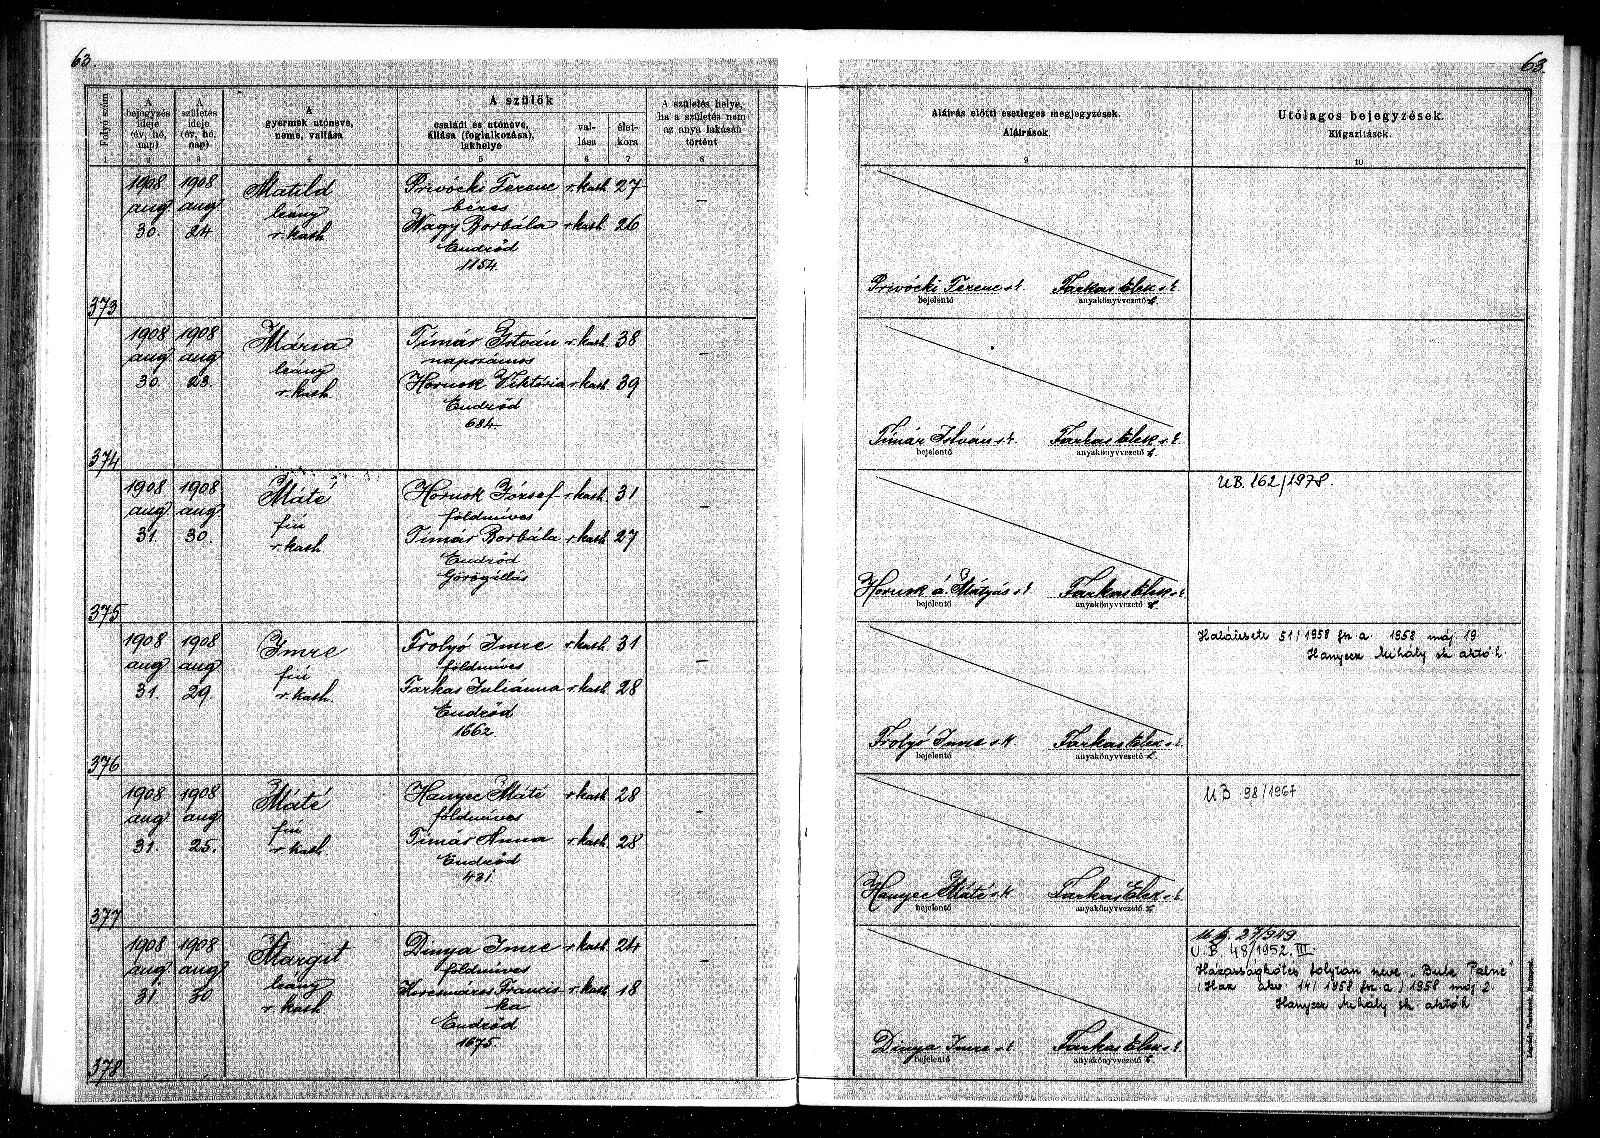 63.
63.
Folyó szám
A bejegyzés ideje (év, hó, nap)
A születés ideje (év, hó, nap)
A gyermek utóneve, neme, vallása
A szülők
családi és utóneve, állása (foglalkozása), lakhelye
vallása
életkora
A születés helye, ha a születés nem az anya lakásán történt
Aláírás előtti esetleges megjegyzések.
Aláírások
Utólagos bejegyzések.
Kiigazítások.
1 2 3 4 5 6 7 8 9 10
373
1908 aug 30.
1908 aug 24.
Matild
leány
r. kath
Privóczki Ferenc r. kath 27
béres
Nagy Borbála r. kath 26
Endrőd
1154.
–
Privóczki Ferenc s. k. Farkas Elek s. k.
bejelentő anyakönyvvezető h.
374
1908 aug 30.
1908 aug 23.
Mária
leány
r. kath
Tímár István r. kath 38
napszámos
Hornok Viktória r. kath 39
Endrőd
684
–
Tímár István s. k. Farkas Elek s. k.
bejelentő anyakönyvvezető h.
375
1908 aug 31.
1908 aug 30.
Máté
fiú
r. kath
Hornok József r. kath 31
földmíves
Tímár Borbála r. kath 27
Endrőd
–
Hornok á. Mátyás s. k. Farkas Elek s. k.
bejelentő anyakönyvvezető h.
UB. 162/1978.
376
1908 aug 31.
1908 aug 29.
Imre
fiú
r. kath.
Frolyó Imre r. kath 31
földmíves
Farkas Juliánna r. kath 28
Endrőd
1662
–
Frolyó Imre s. k. Farkas Elek s. k.
bejelentő anyakönyvvezető h.
Halálesete 51/1958 fsz. a. 1958 máj 19
Hanyecz Mihály sk
377
1908 aug 31.
1908 aug 25.
Máté
fiú
r. kath.
Hanyec Máté r. kath 28
földmíves
Tímár Anna r. kath. 28
Endrőd
431
–
Hanyec Máté s. k. Farkas Elek s. k.
bejelentő anyakönyvvezető h.
UB 98/1967
378
1908 aug 31
1908 aug 30
Margit
leány
r. kath
Dinya Imre r. kath 24
földmíves
Kocsmáros Francis r. kath 18
ka
Endrőd
1675.
–
Dinya Imre s. k. Farkas Elek s. k.
bejelentő anyakönyvvezető h.
U.B. 48/1952. III
Házasságkötés folytán neve
1958 máj 2
Hanyecz Mihály sk